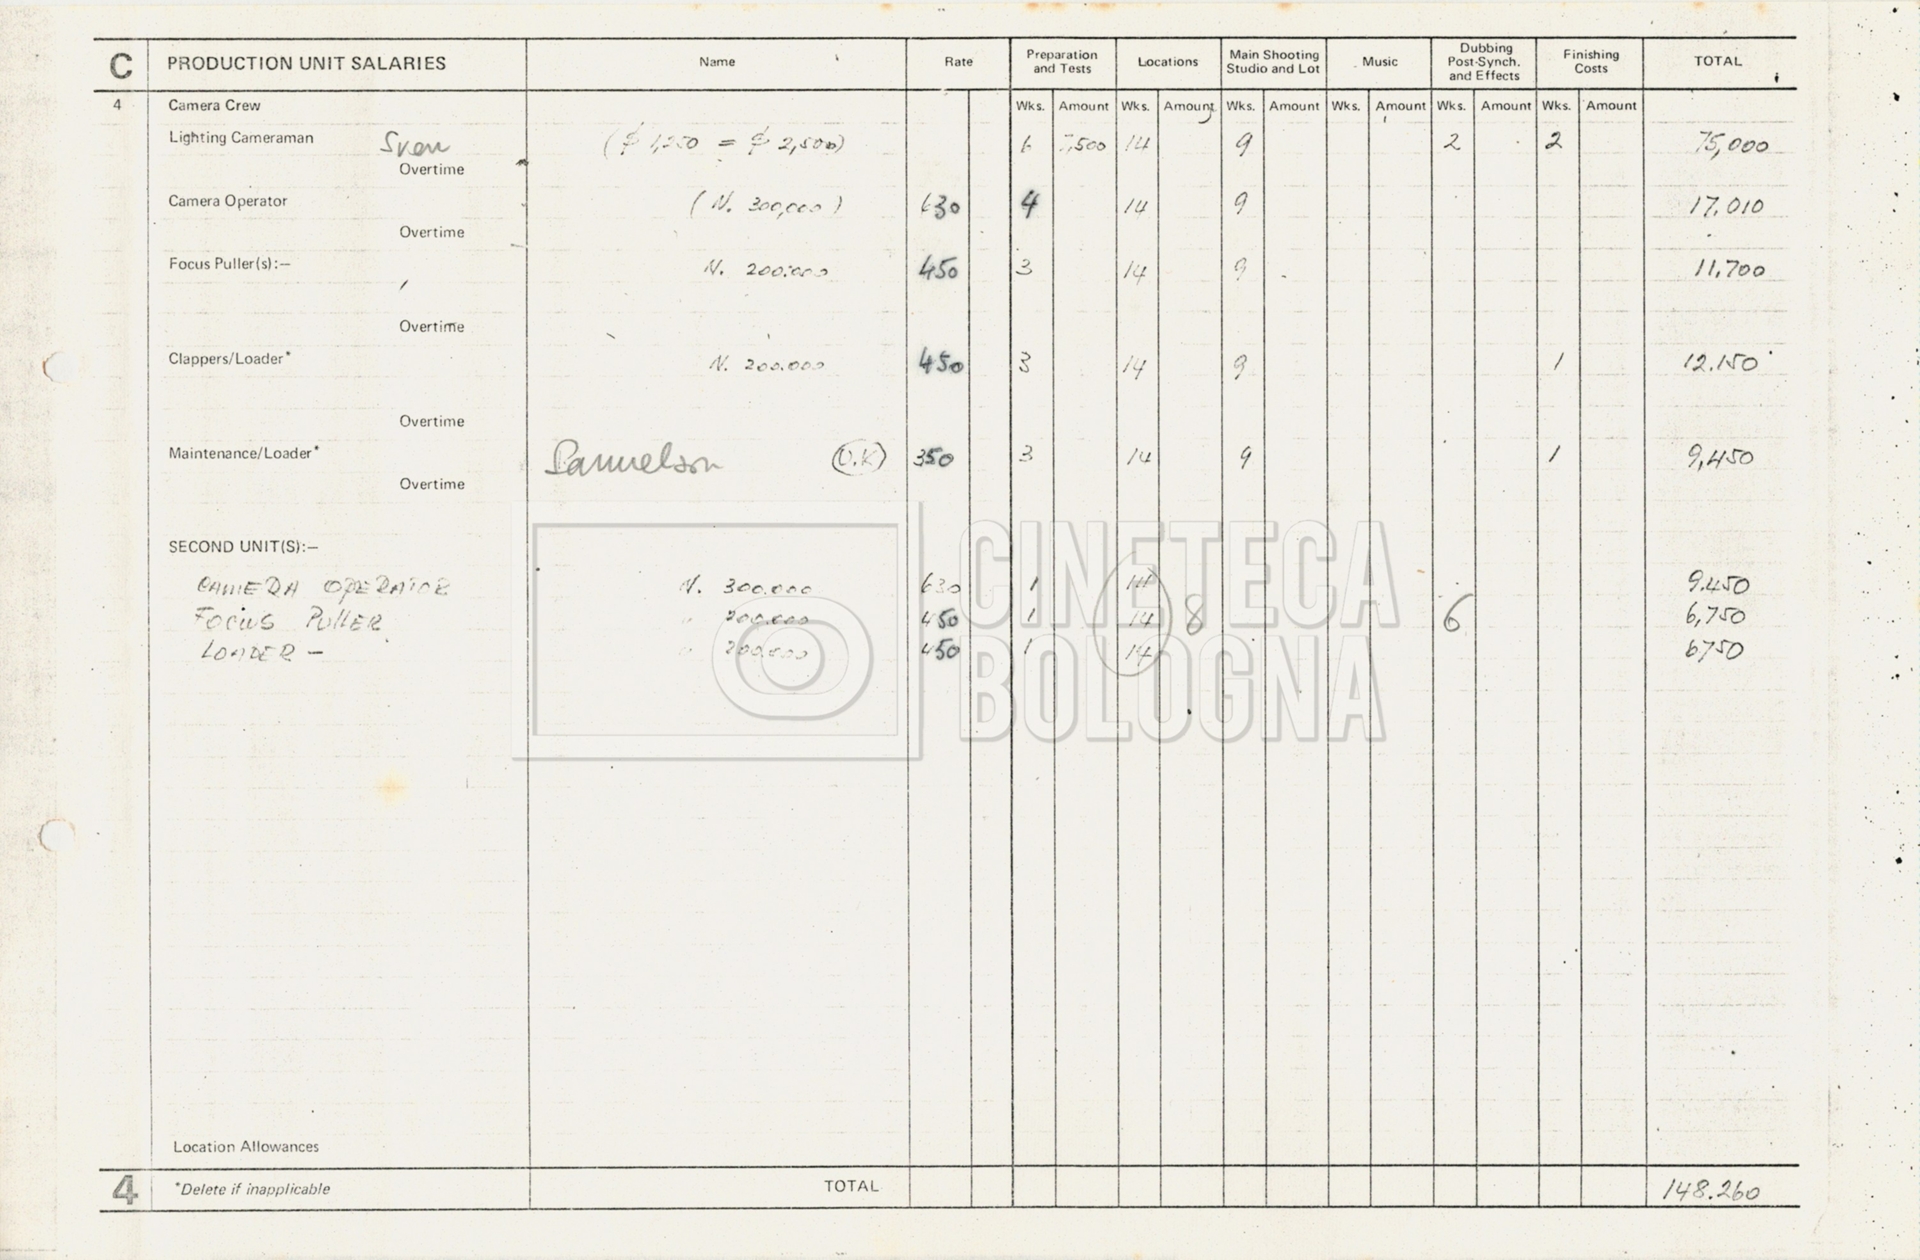 C PRODUCTION UNIT SALARIES Name Rate Preparation and Tests Locations Main Shooting Studio and Lot Music Dubbing Post-Synch. and Effects Finishing Costs TOTAL
4 Camera Crew Wks. Amount Wks. Amount Wks. Amount Wks. Amount Wks. Amount Wks. Amount
Lighting Cameraman Sven 6 14 9 2 2 75,000
Overtime
Camera Operator (N. 300,000) 630 4 14 9 17.010
Overtime
Focus Puller(s):— N. 200.000 450 3 14 9 11,700
Overtime
Clappers/Loader* N. 200.000 450 3 14 9 1 12.150
Overtime
Maintenance/Loader* Samuelson (U.K) 350 3 14 9 1 9,450
Overtime
SECOND UNIT(S):—
CAMERA OPERATOR N. 300.000 630 1 14 9.450
FOCUS PULLER " 200.000 450 1 14 8 6 6,750
LOADER – " 200.000 450 1 14 6750
CINETECA
BOLOGNA
Location Allowances
4 *Delete if inapplicable TOTAL 148.260